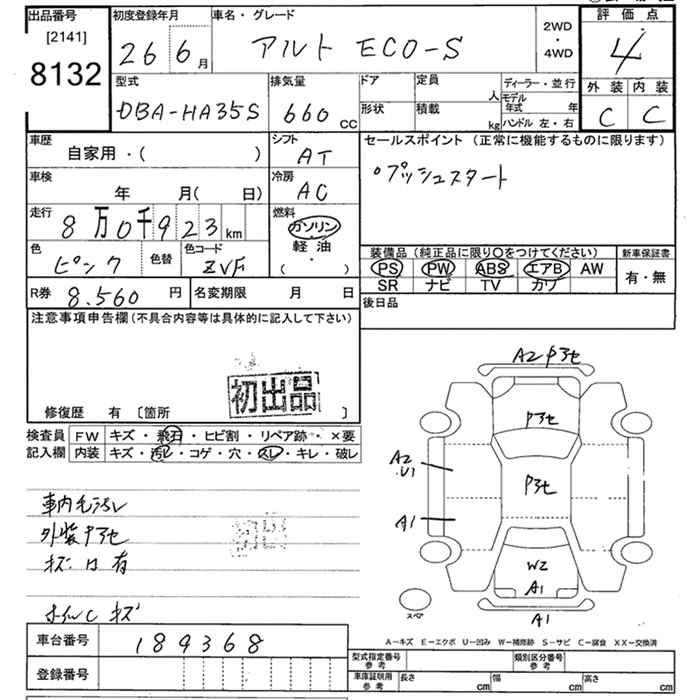 出品番号
[2141]
8132
初度登録年月
26 6月
車名・グレード
アルト ECO-S
2WD
・
4WD
評価点
4
外装 内装
C C
型式
DBA-HA35S
排気量
660 CC
ドア
形状
定員
人
積載
kg
ディーラー・並行
モデル年式 年
ハンドル 左・右
車歴
自家用・( )
シフト
AT
セールスポイント (正常に機能するものに限ります)
・プッシュスタート
車検
年 月( 日)
冷房
AC
走行
8万0千923km
燃料
ガソリン
軽油
( ・ )
色
ピンク
色替
色コード
ZVF
装備品 (純品に限り〇をつけてください)
PS PW ABS エアB AW
SR ナビ TV カワ
新車保証書
有・無
R券 8.560 円
名変期限 月 日
後日品
注意事項申告欄 (不具合内容等は具体的に記入して下さい)
初出品
修復歴 有 〔箇所 〕
検査員記入欄
FW キズ・飛石・ヒビ割・リペア跡・×要
内装 キズ・汚レ・コゲ・穴・スレ・キレ・破レ
車内毛汚レ
外装Pスセ
キズ凹有
ホイルC キズ
A2 Pスセ
Pスセ
A2
U1
Pスセ
A1
W2
A1
スペア
A1
A-キズ E-エクボ U-凹み W-補修跡 S-サビ C-腐食 XX-交換済
車台番号 189368
登録番号
型式指定番号参考
類別区分番号参考
車庫証明用参考 長さ cm 幅 cm 高さ cm